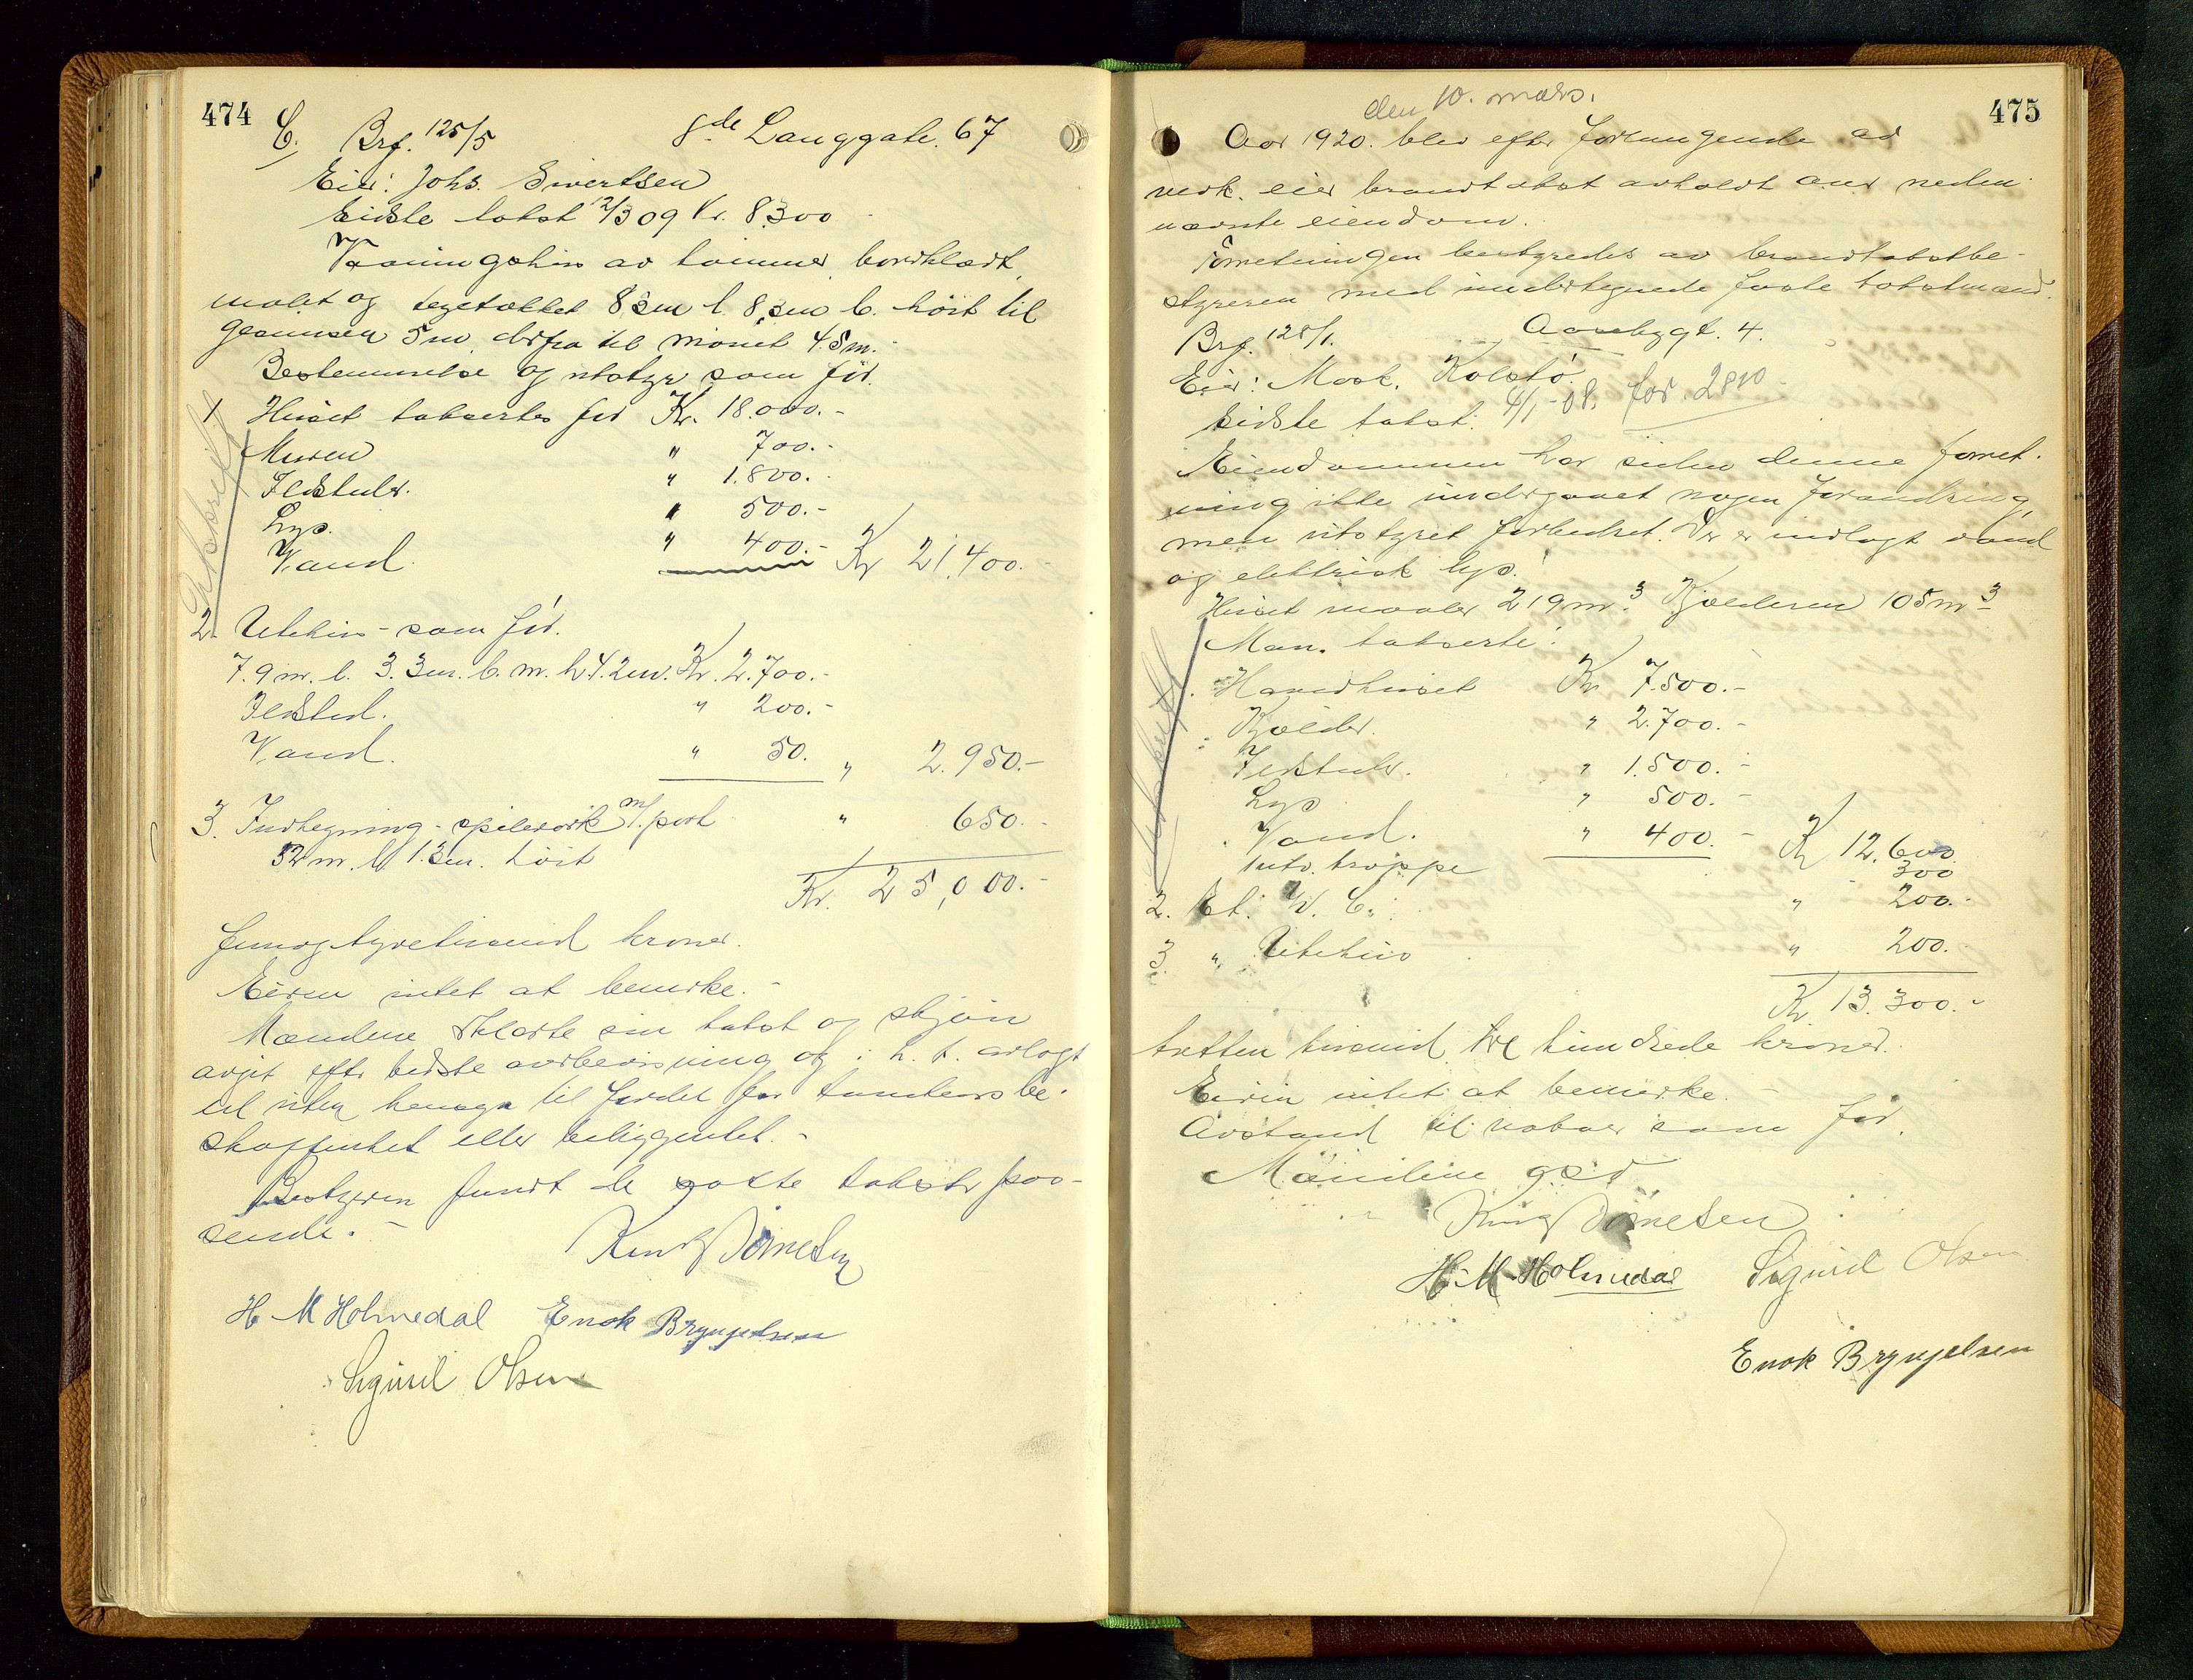 474
C. Brf. 125/5 8de Langgate. 67
Eier: Johs. Sivertsen
Sidste takst 12/3 09 Kr. 8300
Vaaningshus av tømmer, bordklædt,
malet og teglstækket 8.3m l. 8.3m b. høit til
gesimsen 5m derfra til mønet 4.5m.
Bestemmelse og utstyr som før.
1 Huset takseres for Kr. 18.000.-
Muren " 700.-
Ildsteder. " 1.800.-
Lys. " 500.-
Vand. " 400.- Kr 21.400.-
2. Uthus - som før.
7.9 m. l. 3.3m. b. m. h. 4.2m. Kr. 2.700.-
Ildsted. " 200.-
Vand. " 50. " 2.950.-
3. Indhegning - spileverk m/. port " 650.-
32 m. l. 1.3m. høit
Kr. 25,000.-
femogtyvetusind kroner.
Eieren intet at bemerke.-
Mændene erklærte sin takst og skjøn
avgit efter bedste overbevisning og i h. t. avlagt
ed uten hensyn til fordel for tomtens be-
skaffenhet eller beliggenhet.-
Bestyreren fandt de satte takster pas-
sende.-
Knut Tønnesen
H M Holmedal Enok Bryngelsen
Sigurd Olsen
475
den 10. mars.
Aar 1920. blev efter forlangende av
vedk. eier brandtakst avholdt over neden-
nævnte eiendom.
Forretningen bestyredes av brandtakstbe-
styreren med undertegnede faste takstmænd.
Brf. 128/1. Aasbygt. 4.
Eier: Mask. Kolstø.
Sidste takst: 4/1-08. for. 2810-
Eiendommen har siden denne forret-
ning ikke undergaaet nogen forandring,
men utstyret forbedret. Der er indlagt vand
og elektrisk lys.
Huset maaler 219m.3 Kjælderen 105m3
Man. takserte:
Hovedhuset Kr 7.500.-
Kjælder. " 2.700.-
Ildsteder. " 1.500.-
Lys " 500.-
Vand. " 400.- Kr 12.600
Utv. trappe 300
2. Et. W. C. " 200.-
3. " Uthus " 200.-
Kr 13.300.-
tretten tusind tre hundrede kroner.
Eieren intet at bemerke.-
Avstand til naboer som før.
Mændene
Knut Tønnesen
H. M. Holmedal Sigurd Olsen
Enok Bryngelsen